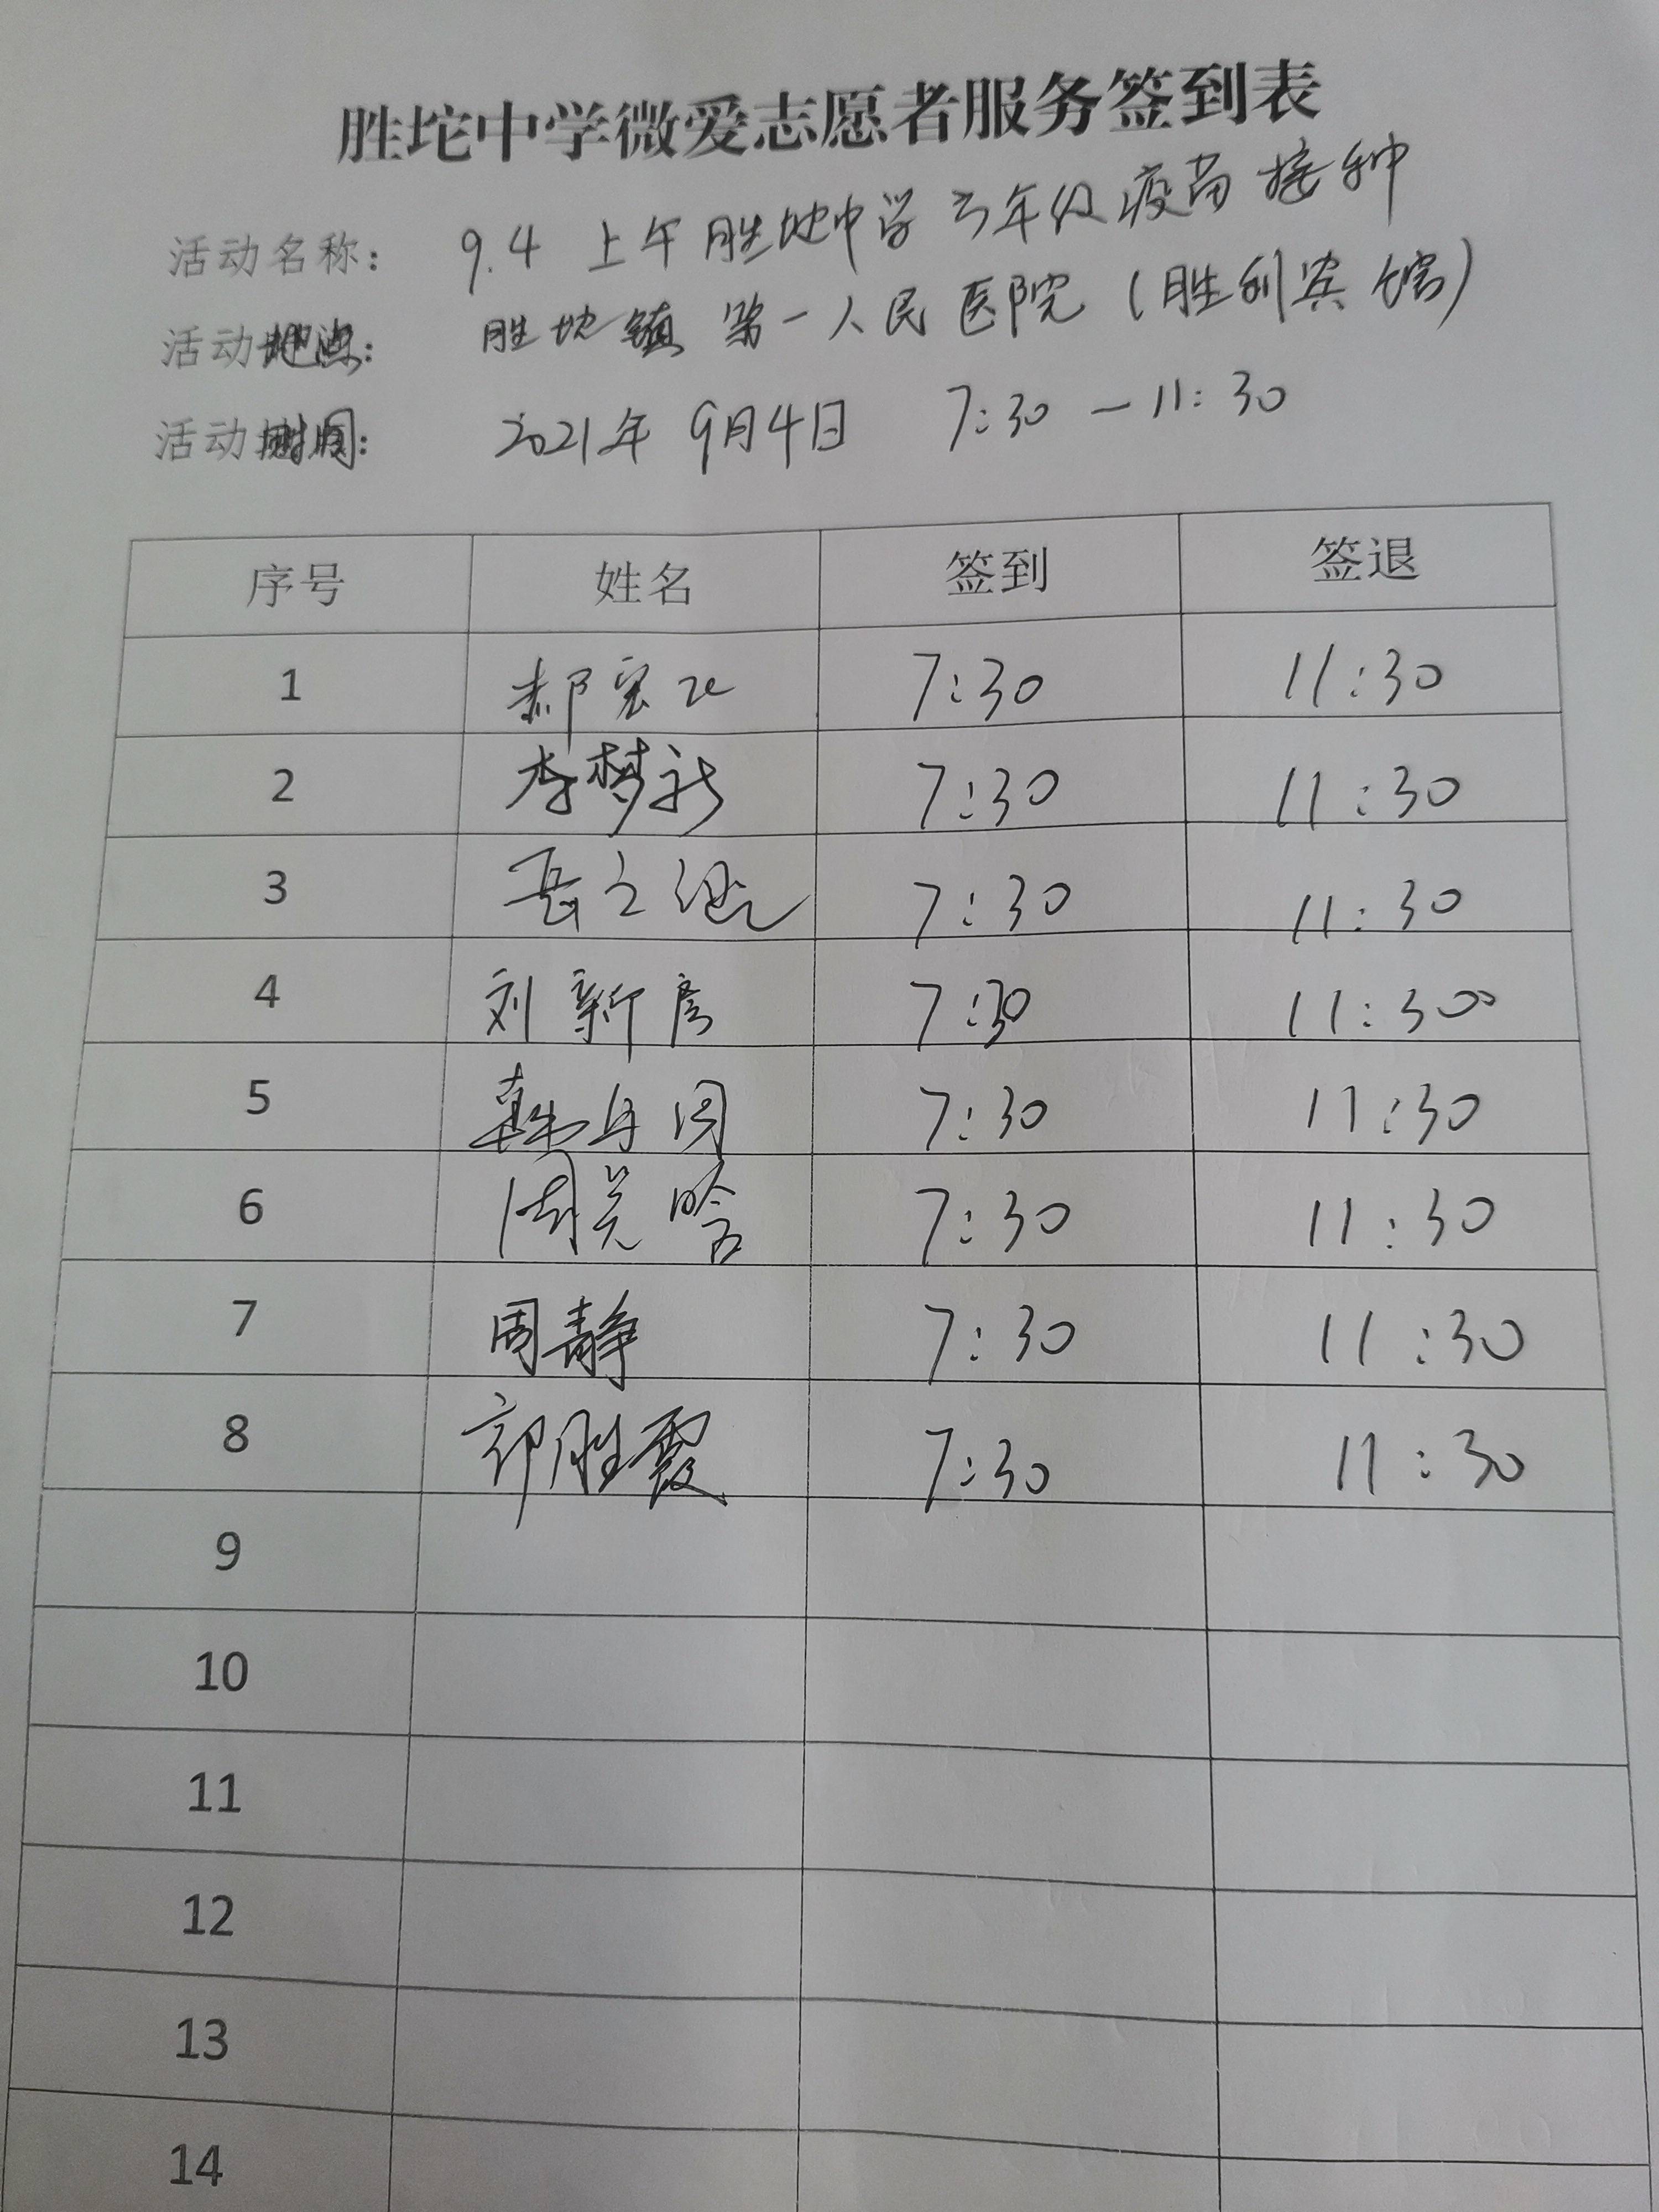 胜坨中学微爱志愿者服务签到表
活动名称: 9.4 上午胜坨中学 年级疫苗接种
活动地点: 胜坨镇第一人民医院(胜利宾馆)
活动时间: 2021年9月4日 7:30—11:30
序号 姓名 签到 签退
1 郝 7:30 11:30
2 李梦 7:30 11:30
3 岳 7:30 11:30
4 刘新彦 7:30 11:30
5 韩 7:30 11:30
6 周 晗 7:30 11:30
7 周静 7:30 11:30
8 郭胜霞 7:30 11:30
9
10
11
12
13
14